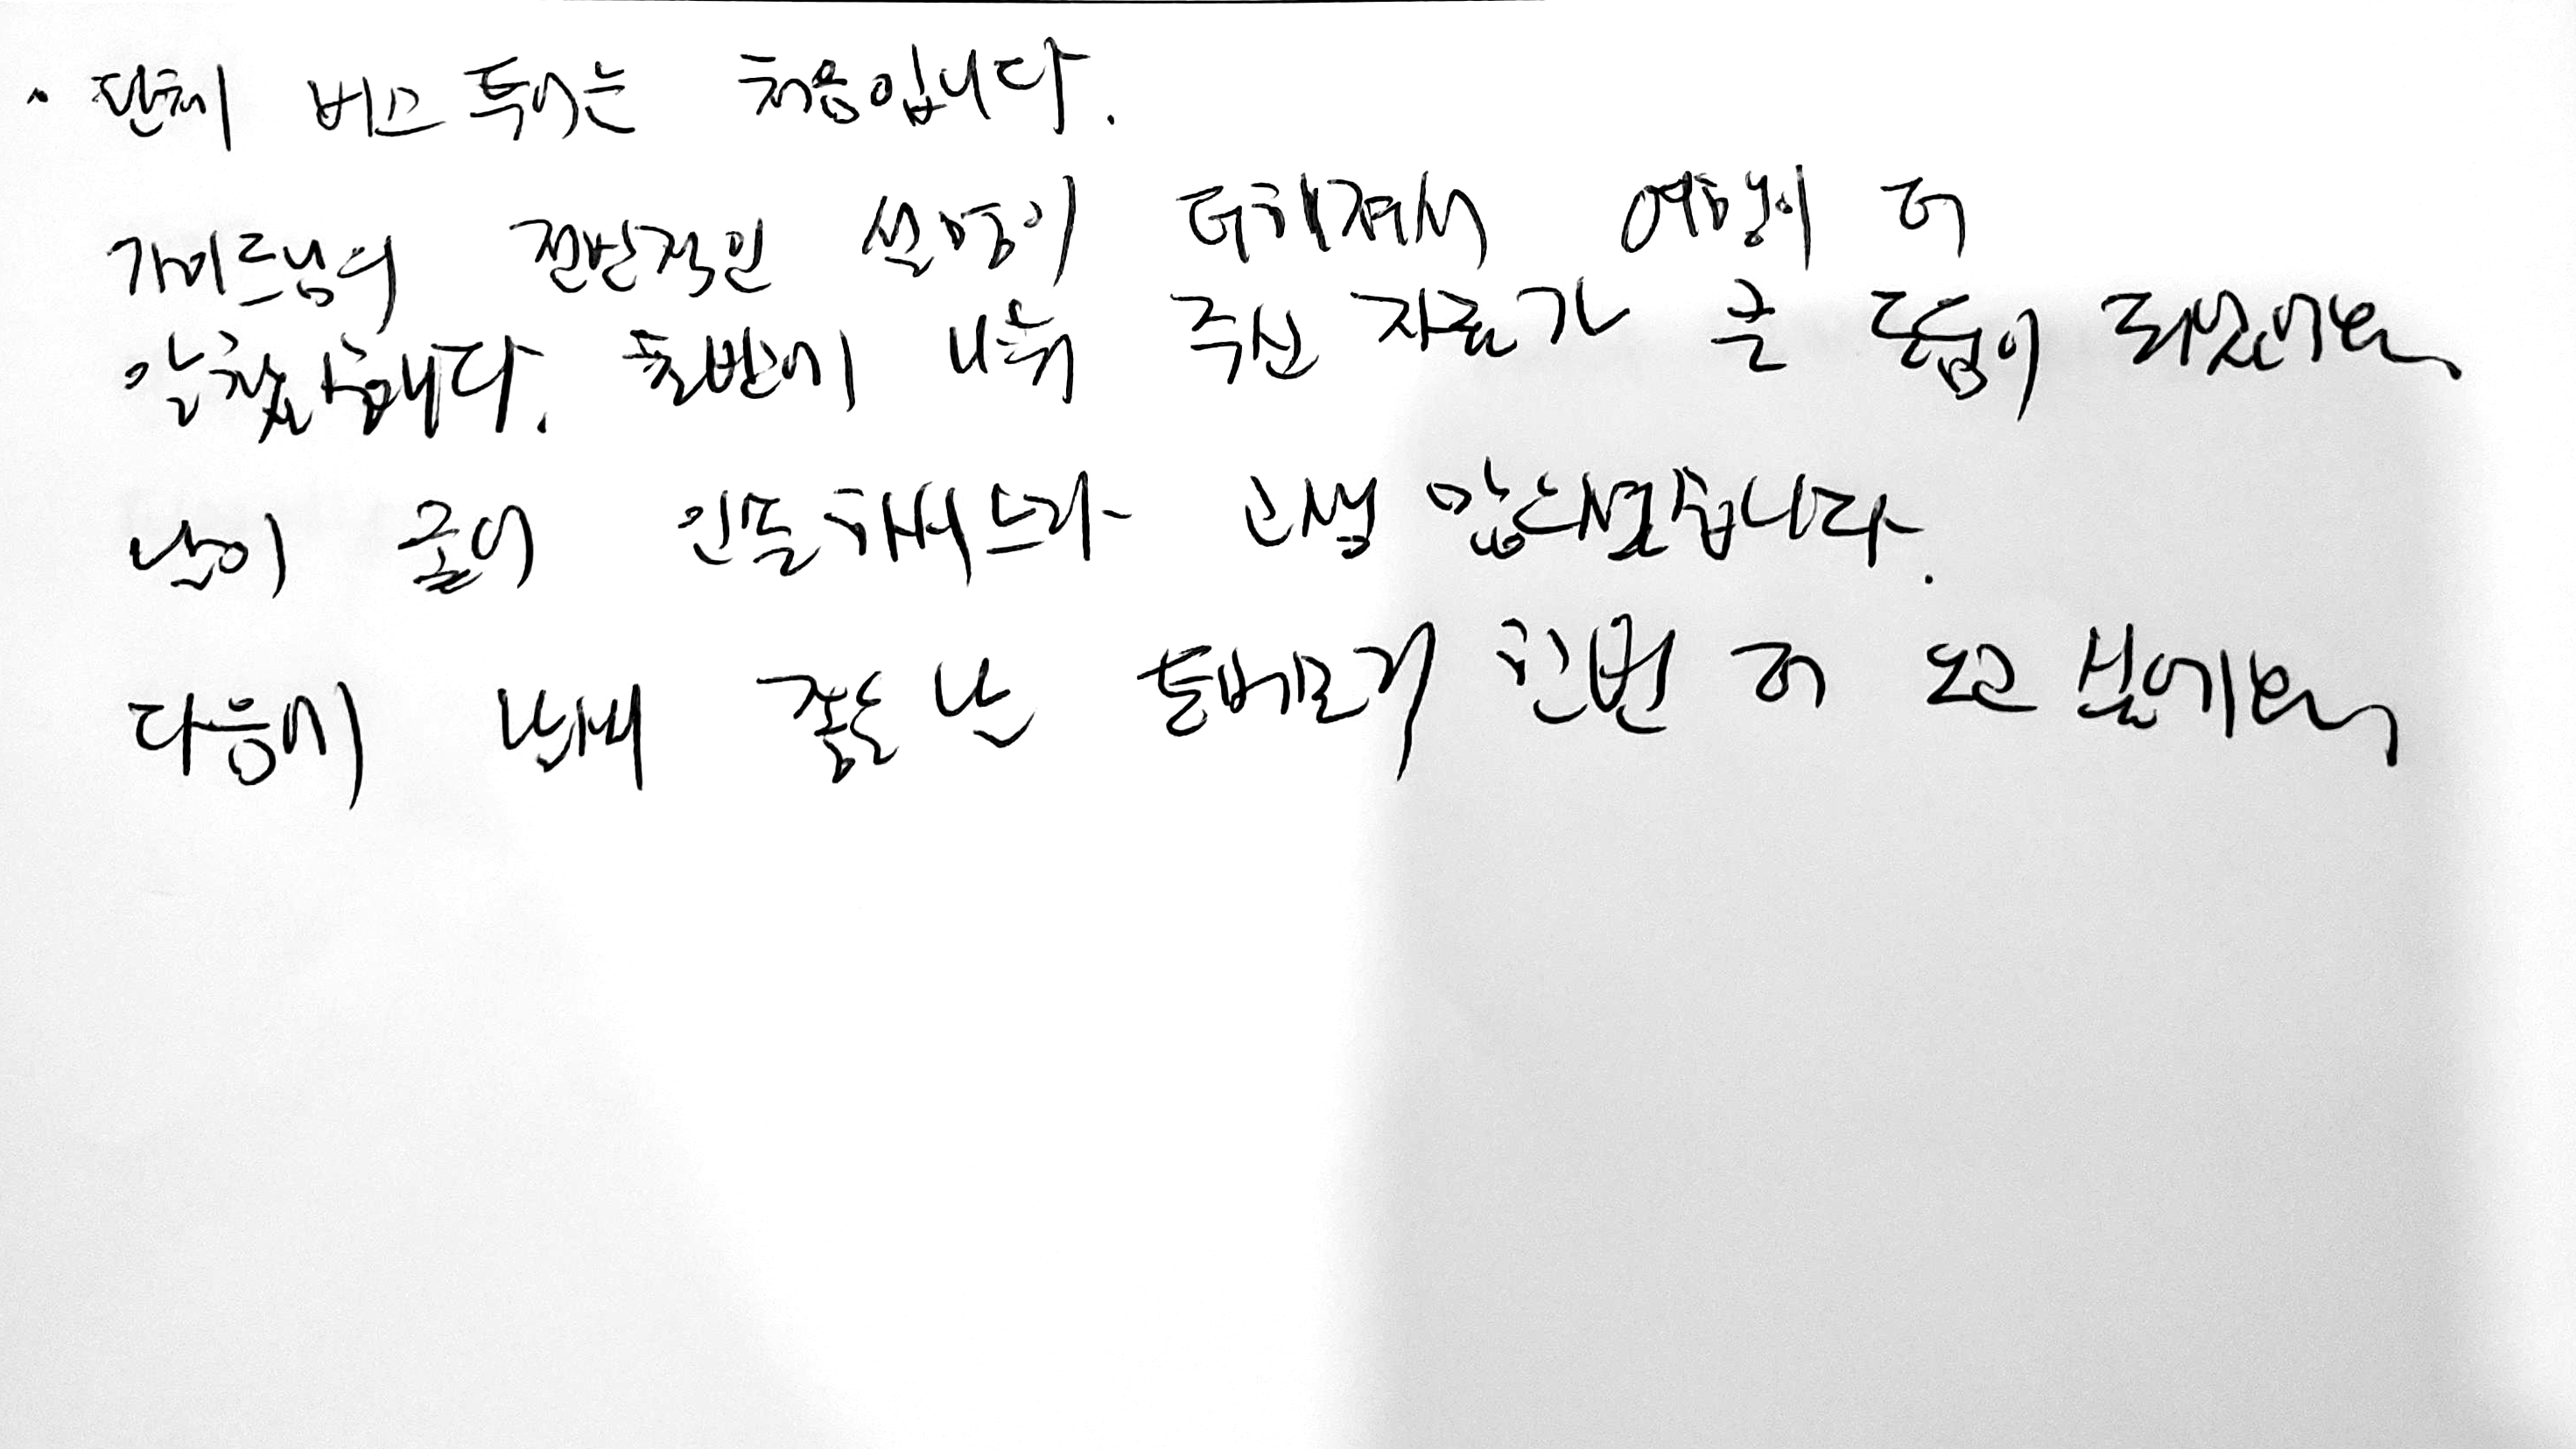 · 단체 버스 투어는 처음입니다.
가이드님의 전반적인 설명이 더해져서 여행이 더
알찼습니다. 초반에 나눠 주신 자료가 큰 도움이 되었어요
난이 줄어 인솔하시느라 고생 많으셨습니다.
다음에 날씨 좋은 날 돌베르기 한번 더 오고 싶네요